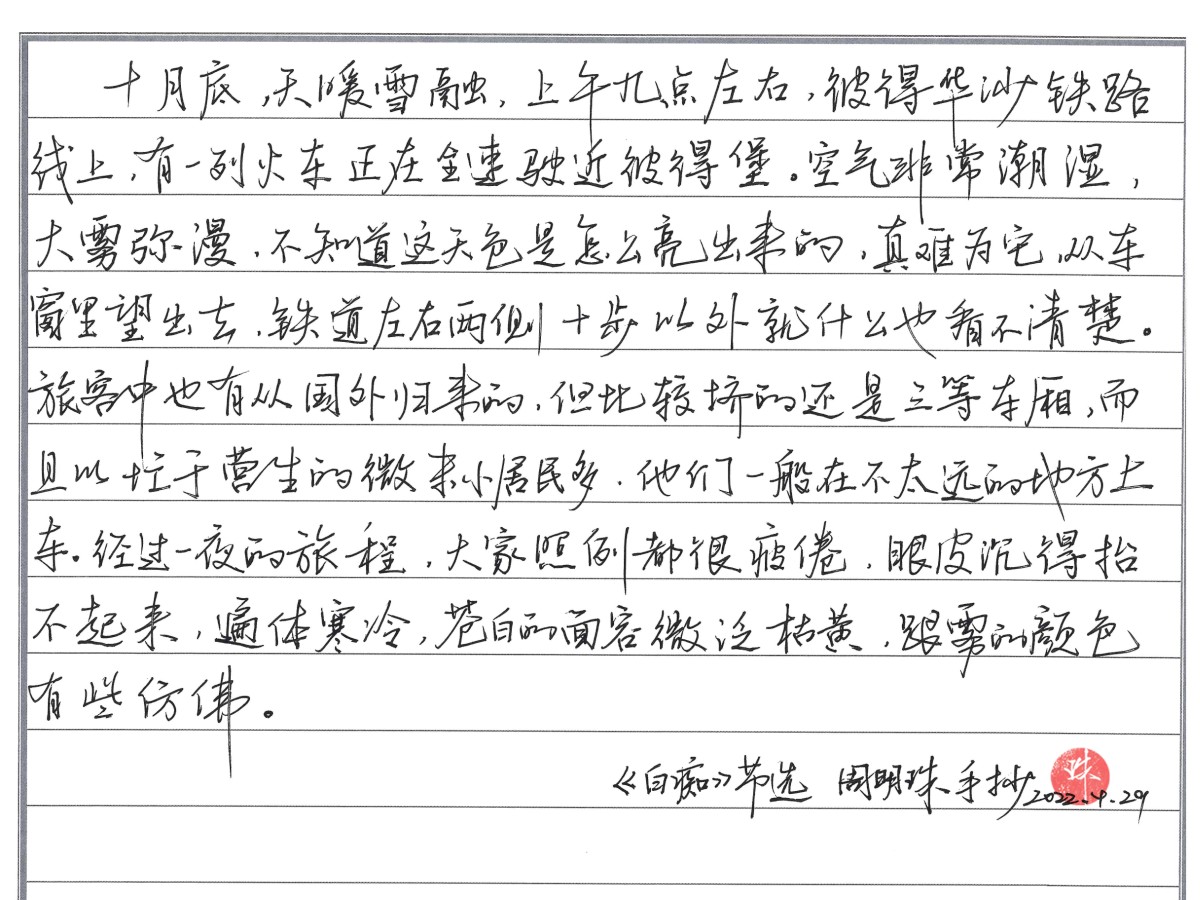 十月底，天暖雪融，上午九点左右，彼得华沙铁路
线上，有一列火车正在全速驶近彼得堡。空气非常潮湿，
大雾弥漫，不知道这天色是怎么亮出来的，真难为它，从车
窗里望出去，铁道左右两侧十步以外就什么也看不清楚。
旅客中也有从国外归来的，但比较挤的还是三等车厢，而
且以忙于营生的微末小居民多，他们一般在不太远的地方上
车。经过一夜的旅程，大家照例都很疲倦，眼皮沉得抬
不起来，遍体寒冷，苍白的面容微泛枯黄，跟雾的颜色
有些仿佛。
《白痴》节选 周明珠手抄 珠
2022.4.29